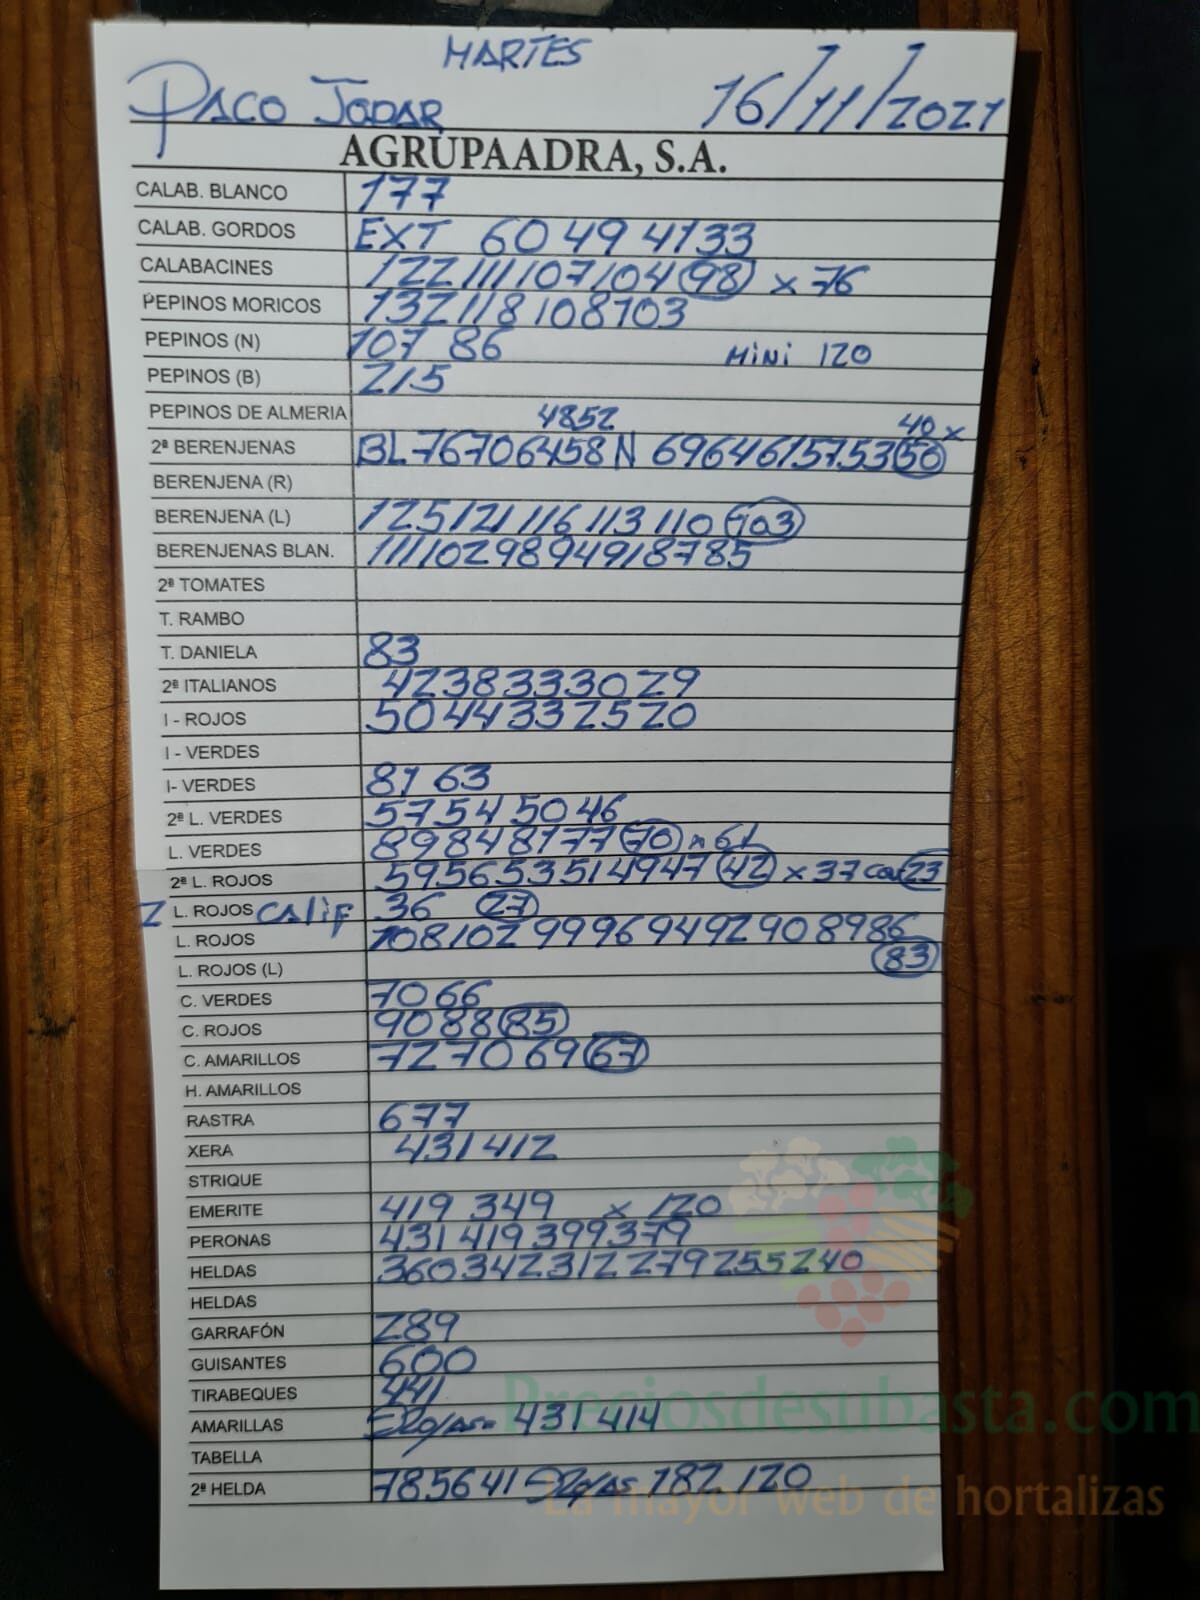 MARTES
PACO JODAR 16/11/2021
AGRUPAADRA, S.A.
CALAB. BLANCO 177
CALAB. GORDOS EXT 60 49 41 33
CALABACINES 122 111 107 104 98 x 76
PEPINOS MORICOS 132 118 108 103
PEPINOS (N) 107 86 MINI 120
PEPINOS (B) 215
PEPINOS DE ALMERIA 48 52 40 x
2ª BERENJENAS BL 76 70 64 58 N 69 64 61 57 53 50
BERENJENA (R)
BERENJENA (L) 125 121 116 113 110 103
BERENJENAS BLAN. 111 102 98 94 91 87 85
2ª TOMATES
T. RAMBO
T. DANIELA 83
2ª ITALIANOS 42 38 33 30 29
I - ROJOS 50 44 33 25 20
I - VERDES
I- VERDES 81 63
2ª L. VERDES 57 54 50 46
L. VERDES 89 84 81 77 70 x 61
2ª L. ROJOS 59 56 53 51 49 47 42 x 37 23
2 L. ROJOS CALIF 36 27
L. ROJOS 108 102 99 96 94 92 90 89 86
L. ROJOS (L) 83
C. VERDES 70 66
C. ROJOS 90 88 85
C. AMARILLOS 72 70 69 67
H. AMARILLOS
RASTRA 677
XERA 431 412
STRIQUE
EMERITE 419 349 x 120
PERONAS 431 419 399 379
HELDAS 360 342 312 279 255 240
HELDAS
GARRAFÓN 289
GUISANTES 600
TIRABEQUES 441
AMARILLAS 431 414
TABELLA
2ª HELDA 78 56 41 182 120
Preciosdesubasta.com
La mayor web de hortalizas